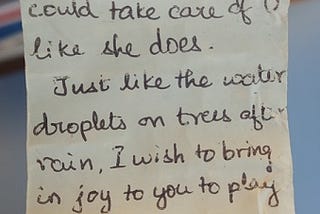 could take care of
like she does.
Just like the water
droplets on trees
rain, I wish to bring
in joy to you to play